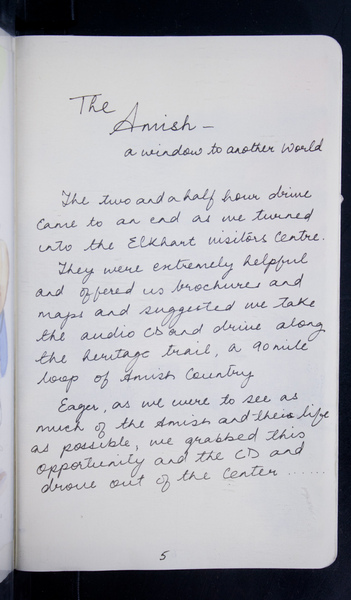 The
Amish –
a window to another World
The two and a half hour drive
came to an end as we turned
into the Elkhart visitors Centre.
They were extremely helpful
and offered us brochures and
maps and suggested we take
the audio CD and drive along
the heritage trail, a 90 mile
loop of Amish Country
Eager, as we were to see as
much of the Amish and their life
as possible, we grabbed this
opportunity and the CD and
drove out of the Center ......
5